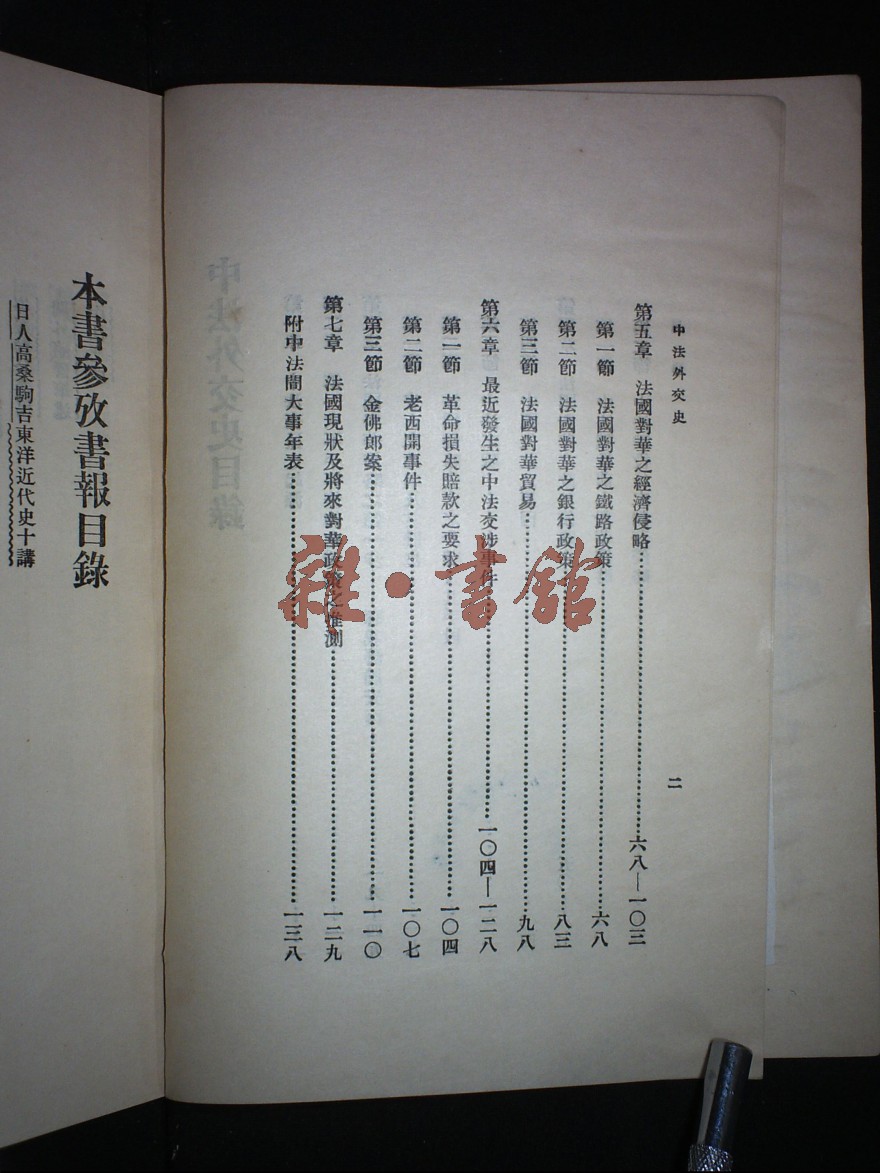 中法外交史
二
第五章　法國對華之經濟侵略⋯⋯⋯⋯⋯⋯⋯⋯六八—一〇三
第一節　法國對華之鐵路政策⋯⋯⋯⋯⋯⋯⋯⋯六八
第二節　法國對華之銀行政策⋯⋯⋯⋯⋯⋯⋯⋯八三
第三節　法國對華貿易⋯⋯⋯⋯⋯⋯⋯⋯九八
第六章　最近發生之中法交涉事件⋯⋯⋯⋯⋯⋯⋯⋯一〇四—一二八
第一節　革命損失賠款之要求⋯⋯⋯⋯⋯⋯⋯⋯一〇四
第二節　老西開事件⋯⋯⋯⋯⋯⋯⋯⋯一〇七
第三節　金佛郎案⋯⋯⋯⋯⋯⋯⋯⋯一一〇
第七章　法國現狀及將來對華政策之推測⋯⋯⋯⋯⋯⋯⋯⋯一二九
附中法間大事年表⋯⋯⋯⋯⋯⋯⋯⋯一三八
雜·書館
本書參攷書報目錄
日人高桑駒吉東洋近代史十講